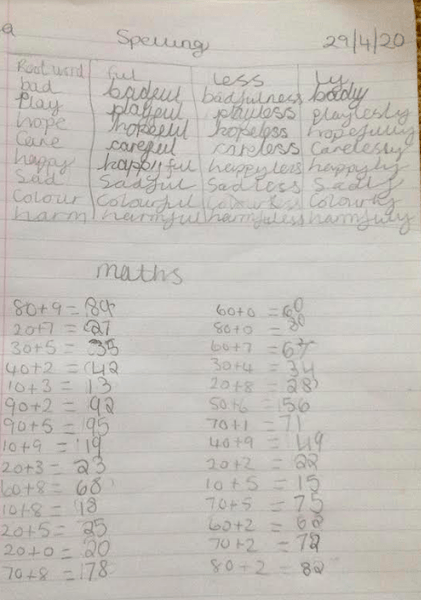 a Spelling 29/4/20
Root word ful less ly
bad badful badfulness badly
play playful playless playlessly
hope hopeful hopeless hopefully
Care careful careless Carelessly
happy happyful happyless happyly
Sad Sadful Sadless Sadly
Colour Colourful Colourless Colourly
harm harmful harmless harmfully
maths
80+9=89 60+0=60
20+7=27 80+0=80
30+5=35 60+7=67
40+2=42 30+4=34
10+3=13 20+8=28
90+2=92 50+6=56
90+5=95 70+1=71
10+9=19 40+9=49
20+3=23 20+2=22
60+8=68 10+5=15
10+8=18 70+5=75
20+5=25 60+2=62
20+0=20 70+2=72
70+8=78 80+2=82